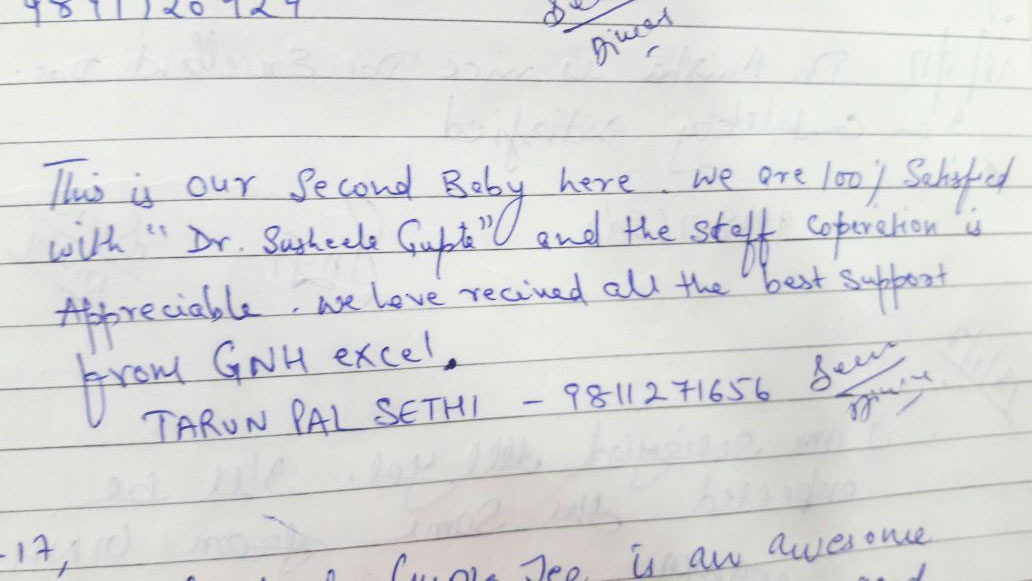 This is our Second Baby here. We are 100% Satisfied
with "Dr. Susheela Gupta" and the staff Coperation is
Appreciable. We have recived all the best Support
from GNH excel.
TARUN PAL SETHI - 9811271656 Seen
-17,
is an awesome